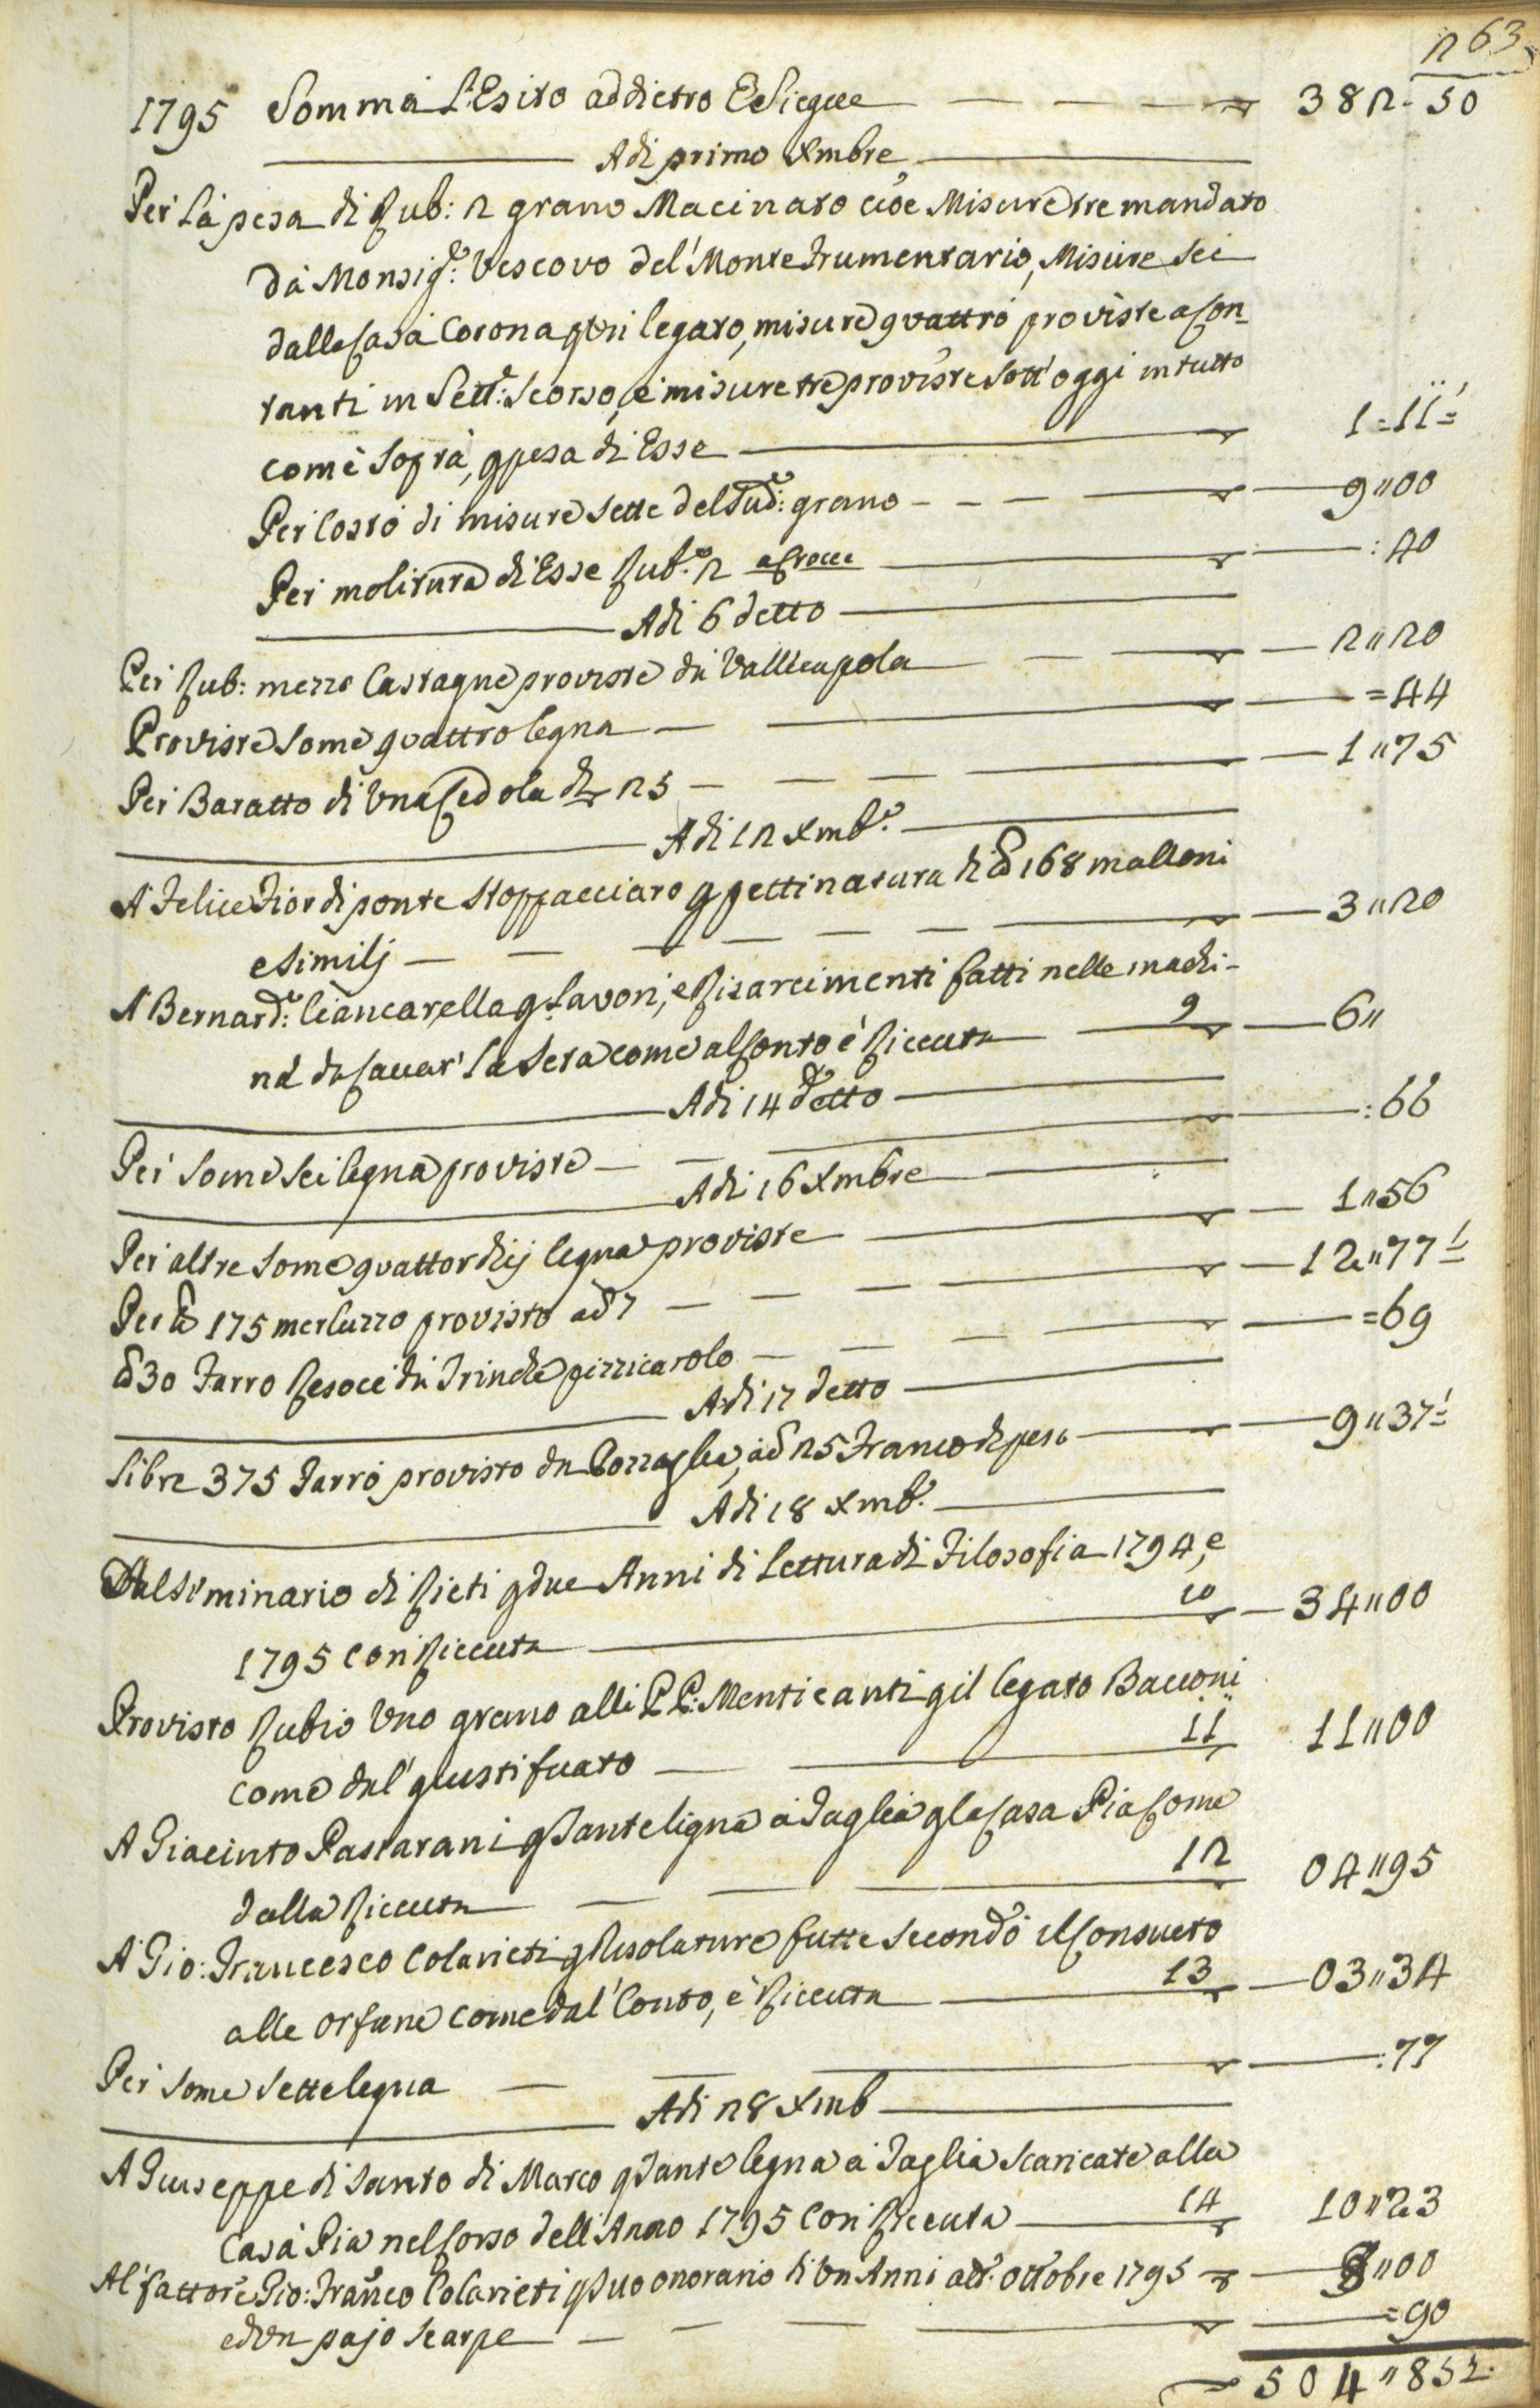 263
1795 Somma L'Esito addietro E Siegue 382 - 50
Adi primo Xmbre
Per la pesa di Rub: 2 grano Macinato cioè Misure tre mandato
da Monsig.e: Vescovo del' Monte Frumentario, Misure sei
dalla Casa Corona per il legato, misure quattro proviste a Con-
tanti in Sett.e: scorso, e misure tre proviste sott'oggi in tutto
come sopra, per pesa di Esse 1 = 11 1/2
Per Costo di misure sette del Sud.o: grano 9 " 00
Per molitura di Esse Rub.a 2 : 40
Adi 6 detto
Per Rub: mezzo Castagne proviste da Vallecupola 2 " 20
Proviste some quattro legna = 44
Per Baratto di Una Cedola di 25 1 " 75
Adi 12 Xmb.e
A Felice Fiordiponte Stoppacciaro per pettinatura di lb 168 malloni
e simili 3 " 20
A Bernard.o: Ciancarella per lavori, e Risarcimenti fatti nelle machi-
na da Cavar' la Seta come al Conto e Riceuta 9 6 "
Adi 14 detto
Per some sei legna proviste : 66
Adi 16 Xmbre
Per altre some quattordici legna proviste 1 " 56
Per lb 175 merluzzo provisto a d 7 12 " 77 1/2
lb 30 Farro Resoci da Trinchè pizzicarolo = 69
Adi 17 detto
Libre 375 Farro provisto da Bozzaglia, a d 25 Franco di peso 9 " 37 1/2
Adi 18 Xmb.e
Al Siminario di Rieti per due Anni di Lettura di Filosofia 1794, e
1795 con Riceuta 10 34 " 00
Provisto Rubio Uno grano alli PP: Menticanti per il legato Bacconi
come dal' giustificato 11 11 " 00
A Giacinto Pastarani per tante ligna a Taglia per la Casa Pia Come
dalla Riceuta 12 04 " 95
A Gio: Francesco Colarieti per Risolature fatte secondo il Consueto
alle Orfane come dal' Conto, e Riceuta 13 03 " 34
Per some sette legna : 77
Adi 28 Xmb
A Giuseppe di Santo di Marco per tante legna a Taglia Scaricate alla
Casa Pia nel Corso dell'Anno 1795 Con Riceuta 14 10 " 23
Al' fattore Gio: Fran.co Colarieti per suo onorario di Un Anni a tt.o ottobre 1795 8 " 00
ed Un pajo Scarpe = 90
504 " 85 1/2